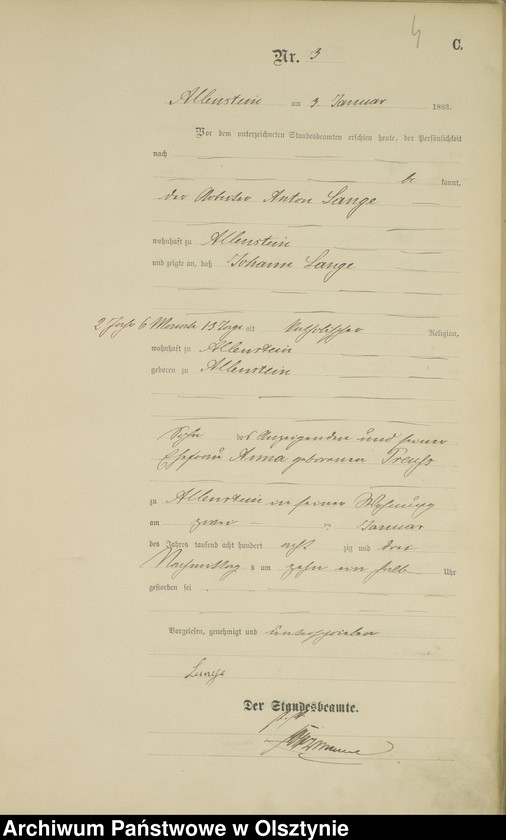 C.
Nr. 3
Allenstein am 3. Januar 1883.
Vor dem unterzeichneten Standesbeamten erschien heute, der Persönlichkeit
nach
be kannt,
der Arbeiter Anton Lange
wohnhaft zu Allenstein
und zeigte an, daß Johann Lange
2 Jahr 6 Monate 13 Tage alt katholischer Religion,
wohnhaft zu Allenstein
geboren zu Allenstein
Sohn des Anzeigenden und seiner
Ehefrau Anna geborenen Preuß
zu Allenstein in seiner Wohnung
am zwei ten Januar
des Jahres tausend acht hundert acht zig und drei
Nachmittag s um zehn ein halb Uhr
gestorben sei
Vorgelesen, genehmigt und unterschrieben
Lange
Der Standesbeamte.
Archiwum Państwowe w Olsztynie